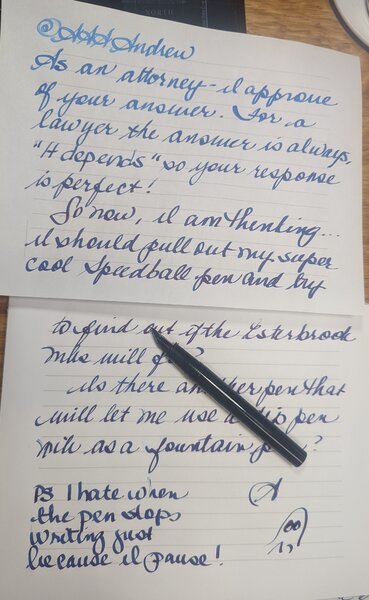 NORTH
@AAAAndrew
As an attorney - I approve
of your answer. For a
lawyer the answer is always,
"It depends" so your response
is perfect!
So now, I am thinking...
I should pull out my super
cool Speedball pen and try
to find out if the Esterbrook
nibs will
Is there another pen that
will let me use a dip pen
nib as a fountain ?
PS I hate when
the pen stops
writing just
because I pause!
A